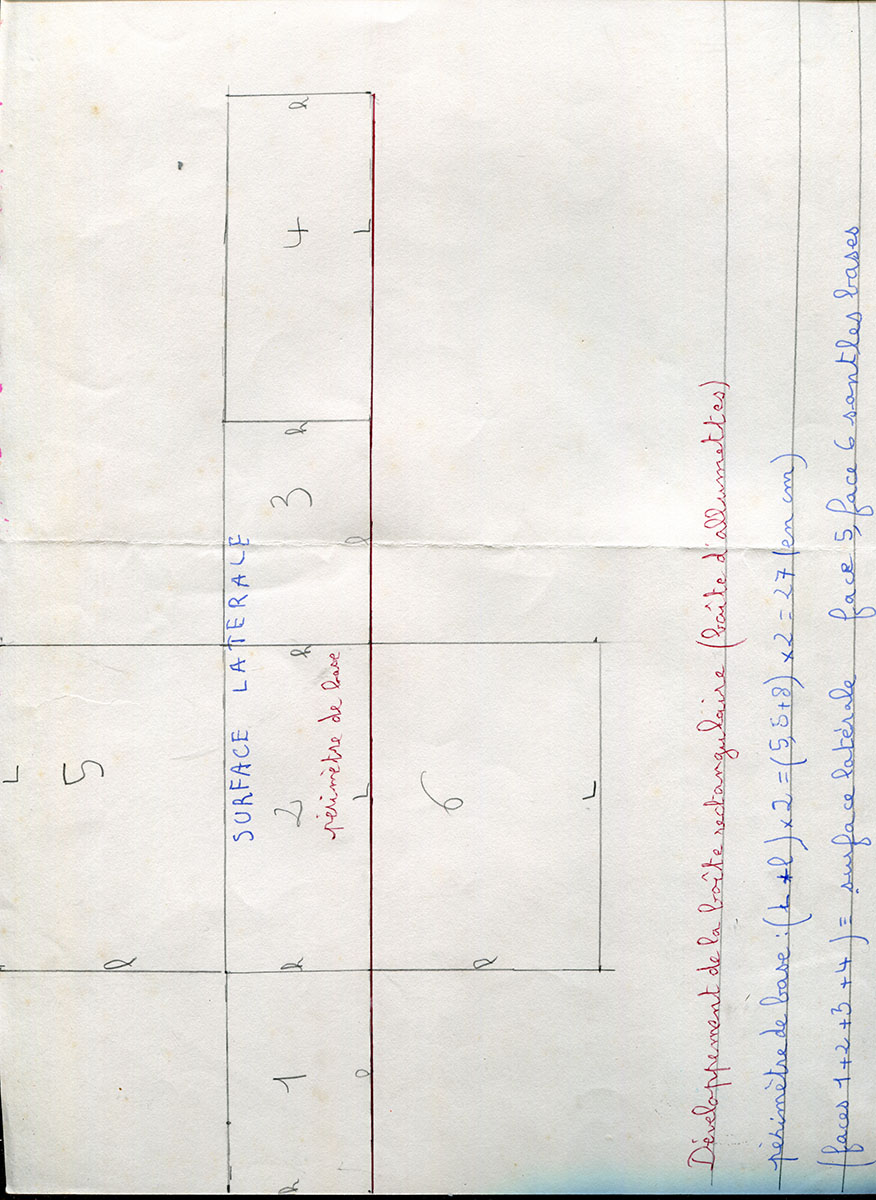 L
5
l
SURFACE LATERALE
h
1
h
2
h
3
h
4
h
périmètre de base
l
L
l
L
6
l
L
Développement de la boîte rectangulaire (boîte d'allumettes)
périmètre de base : (L + l) x 2 = (5,5 + 8) x 2 = 27 (en cm)
(faces 1 + 2 + 3 + 4) = surface latérale face 5, face 6 sont les bases